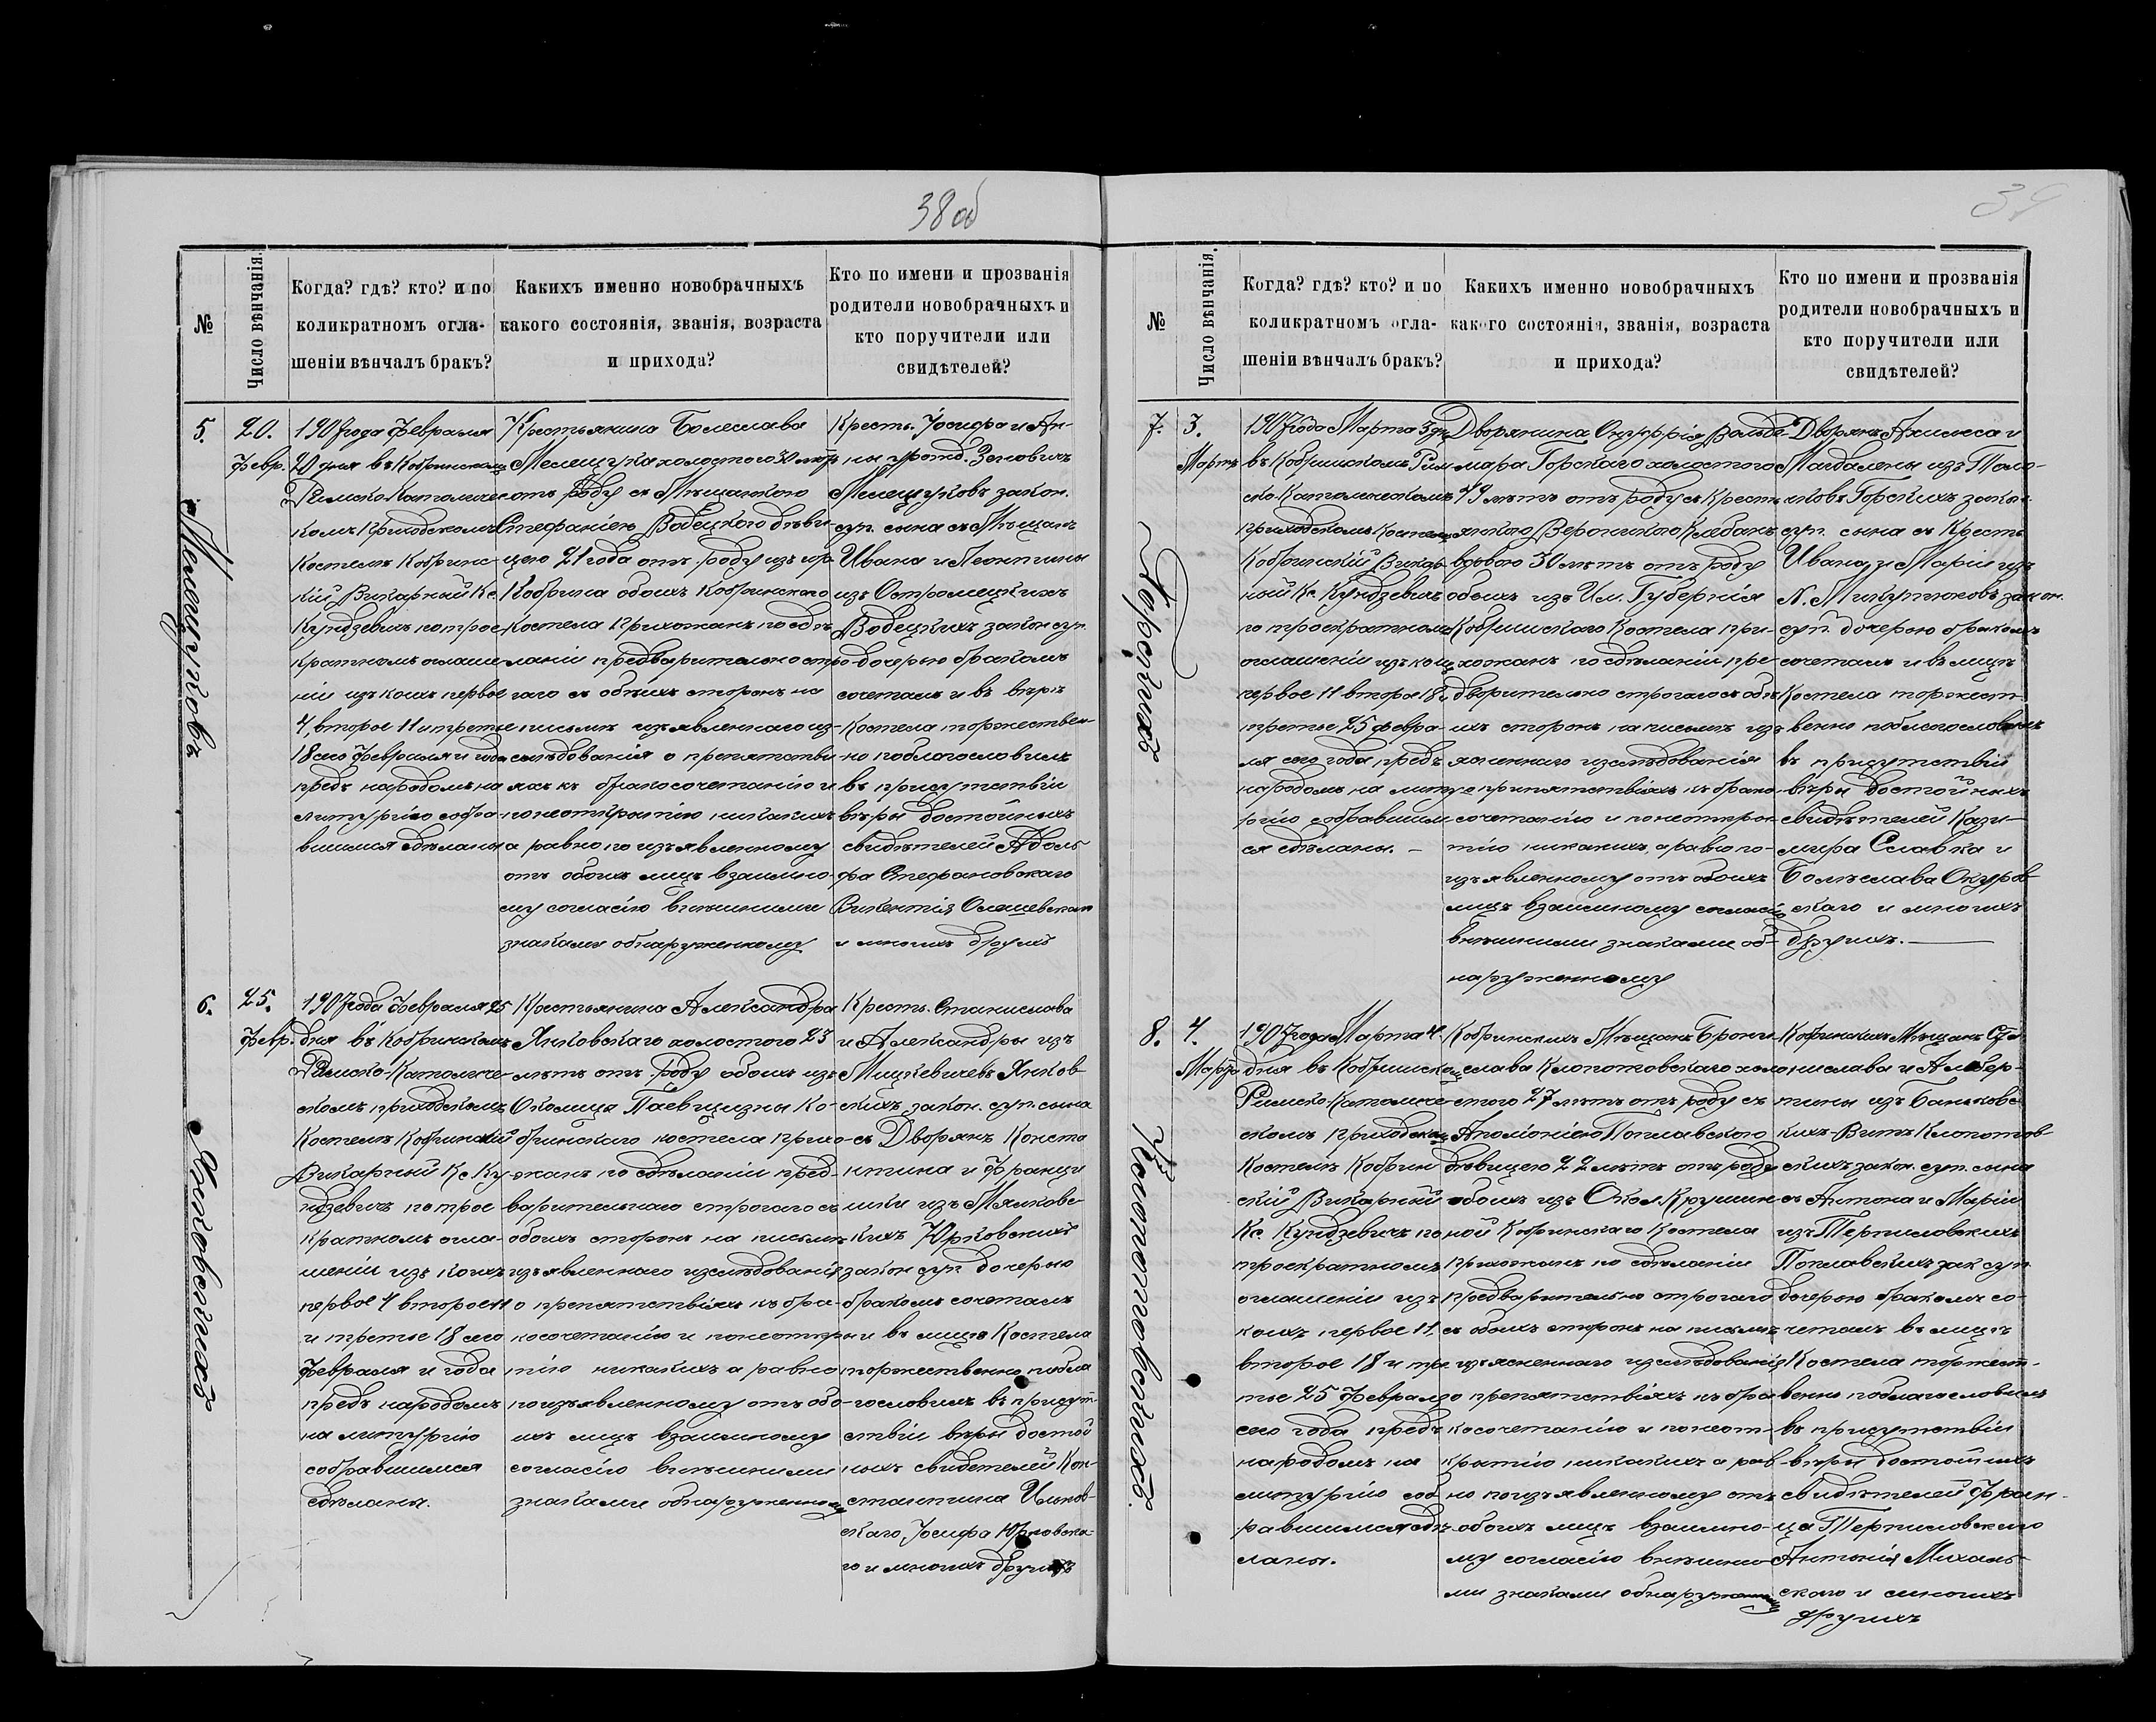 38 об
№
Число вѣнчанія.
Когда? гдѣ? кто? и по
коликратномъ огла-
шеніи вѣнчалъ бракъ?
Какихъ именно новобрачныхъ
какого состоянія, званія, возраста
и прихода?
Кто по имени и прозванія
родители новобрачныхъ и
кто поручители или
свидѣтелей?
5.
Мелещуковъ
20.
Февр.
1907 года Февраля
20 дня въ Кобринскомъ
Римско-Католичес
комъ Приходскомъ
Костелѣ Кобринс-
кій Викарный Кс.
Кундзевичъ по трое
кратномъ оглаше
ніи изъ коихъ первое
4, второе 11 и третье
18 сего Февраля и года
предъ народомъ на
литургію собра-
вшимся сдѣланы
Крестьянина Болеслава
Мелещука холостого 30 лѣтъ
отъ роду съ Мѣщанкою
Стефаніею Водецкою дѣви-
цею 21 года отъ роду изъ гор.
Кобрина обоихъ Кобринскаго
Костела Прихожанъ по сдѣ
ланіи предварительно стро
гаго съ обѣихъ сторонъ на
письмѣ изъявленнаго из-
слѣдованія о препятстві-
яхъ къ бракосочетанію и
по неоткрытію никакихъ
а равно по изъявленному
отъ обоихъ лицъ взаимно-
му согласію внѣшними
знаками обнаруженному
Кресть. Іосифа и Ан-
ны урожд. Зановичъ
Мелещуковъ закон.
суп. сына съ Мѣщанъ
Ивана и Леонтины
изъ Остромецкихъ
Водецкихъ закон суп.
дочерью бракомъ
сочеталъ и въ
Костела торжествен-
но поблагословилъ
въ присутствіи
вѣры достойныхъ
свидѣтелей Адоль-
фа Стефановскаго
Викентія
и многихъ другихъ
6.
Янковскихъ
25.
Февр.
1907 года Февраля 25
дня въ Кобринскомъ
Римско-Католиче-
скомъ приходскомъ
Костелѣ Кобринскій
Викарный Кс Ку-
ндзевичъ по трое
кратномъ огла-
шеніи изъ коихъ
первое 4 второе 11
и третье 18 сего
Февраля и года
предъ народомъ
на литургію
собравшимся
сдѣланы.
Крестьянина Александра
Янковскаго холостого 23
лѣтъ отъ роду обоихъ изъ
Околица Паевщизны Ко-
бринскаго костела прихо-
жанъ по сдѣланіи пред-
варительнаго строгаго съ
обоихъ сторонъ на письмѣ
изъявленнаго изслѣдованія
о препятствіяхъ къ бра-
косочетанію и по неоткры
тію никакихъ а равно
по изъявленному отъ обо-
ихъ лицъ взаимному
согласію внѣшними
знаками обнаруженному
Кресть. Станислава
и Александры изъ
Мицкевичевъ Янков-
скихъ, закон. суп. сына
съ Дворянъ Конста
нтина и Францы
шки изъ
кихъ Юрковскихъ
закон суп дочерью
бракомъ сочеталъ
и въ лицѣ Костела
торжественно побла
гословилъ въ присут-
ствіи вѣры достой
ныхъ свидетелей Кон-
стантина
скаго, Іосифа Юрковска-
го и многихъ другихъ
39
№
Число вѣнчанія.
Когда? гдѣ? кто? и по
коликратномъ огла-
шеніи вѣнчалъ бракъ?
Какихъ именно новобрачныхъ
какого состоянія, званія, возраста
и прихода?
Кто по имени и прозванія
родители новобрачныхъ и
кто поручители или
свидѣтелей?
7.
Горскихъ
3.
Мартъ
1907 года Марта 3 дня
въ Кобринскомъ Рим
ско-Католическомъ
приходскомъ Костелѣ
Кобринскій Викар-
ный Кс. Кундзевичъ
по троекратномъ
оглашеніи изъ коихъ
первое 11 второе 18 и
третье 25 февра-
ля сего года предъ
народомъ на литу-
ргію собравшим
ся сдѣланы. —
Дворянина Онуфрія Вольде-
мара Горскаго холостого
49 лѣтъ отъ роду съ Кресть
янкою Вероникою Кабакъ
вдовою 30 лѣтъ отъ роду
обоихъ изъ Им. Губернія
Кобринскаго Костела при-
хожанъ по сдѣланіи пре-
дварительно строгаго съ обѣ
ихъ сторонъ на письмѣ изъ
ясненнаго изслѣдованія
о припятствіяхъ къ брако
сочетанію и по неоткры
тію никакихъ, а равно по-
изъявленному отъ обоихъ
лицъ взаимному согласію
внѣшними знаками об-
наруженному
Дворянъ Ахилеса и
Магдалены изъ
Горскихъ закон.
суп. сына съ Кресть
Ивана и Маріи изъ
N. Микутюковъ закон.
суп. дочерью бракомъ
сочеталъ и въ лицѣ
Костела торжест-
венно поблагословилъ
въ присутствіи
вѣры достойныхъ
свидѣтелей Кази-
мира Славка и
Болѣслава
скаго и многихъ
другихъ. —
8.
Клопотовскихъ.
4.
Март.
1907 года Марта 4.
дня въ Кобринскомъ
Римско-Католиче-
скомъ Приходскомъ
Костелѣ Кобрин
скій Викарный
Кс. Кундзевичъ по
троекратномъ
оглашеніи изъ
коихъ первое 11,
второе 18 и тре
тье 25 Февраля
сего года предъ
народомъ на
литургію соб
равшимся сдѣ
ланы.
Кобринскихъ Мѣщанъ Брони-
слава Клопотовскаго холо
стого 27 лѣтъ отъ роду съ
Аполоніею Поплавскою
дѣвицею 22 лѣтъ отъ роду
обоихъ изъ Окол. Крушин
ной Кобринскаго Костела
прихожанъ по сдѣланіи
предварительно строгаго
съ обоихъ сторонъ на письмѣ
изъясненнаго изслѣдованія
о препятствіяхъ къ бра
косочетанію и по неот-
крытію никакихъ а рав-
но по изъявленному отъ
обоихъ лицъ взаимно-
му согласію внѣшни
ми знаками обнаруженному
Кобринскихъ Мѣщанъ Ста
нислава и Альбер-
тины изъ Баньковс
кихъ-Витъ Клопотов-
скихъ закон. суп. сына
съ Антона и Маріи
изъ Терпиловскихъ
Поплавскихъ зак суп
дочерью бракомъ со-
четалъ въ лицѣ
Костела торжест-
венно поблагословилъ
въ присутствіи
вѣры достойныхъ
свидѣтелей Фран-
ца Терпиловскаго
Антонія Михаль-
скаго и многихъ
другихъ